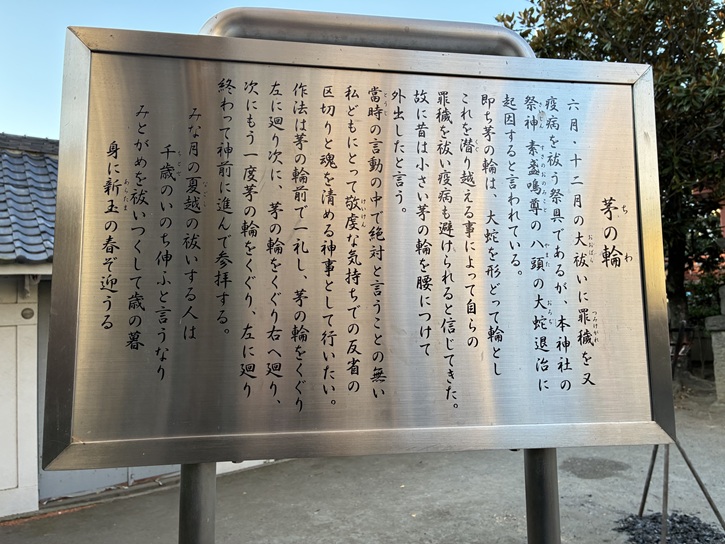 茅の輪
六月、十二月の大祓いに罪穢を又
疫病を祓う祭具であるが、本神社の
祭神 素盞嗚尊の八頭の大蛇退治に
起因すると言われている。
即ち茅の輪は、大蛇を形どって輪とし
これを潜り越える事によって自らの
罪穢を祓い疫病も避けられると信じてきた。
故に昔は小さい茅の輪を腰につけて
外出したと言う。
當時の言動の中で絶対と言うことの無い
私どもにとって敬虔な気持ちでの反省の
区切りと魂を清める神事として行いたい。
作法は茅の輪前で一礼し、茅の輪をくぐり
左に廻り次に、茅の輪をくぐり右へ廻り、
次にもう一度茅の輪をくぐり、左に廻り
終わって神前に進んで参拝する。
みな月の夏越の祓いする人は
千歳のいのち伸ふと言うなり
みとがめを祓いつくして歳の暮
身に新玉の春ぞ迎うる